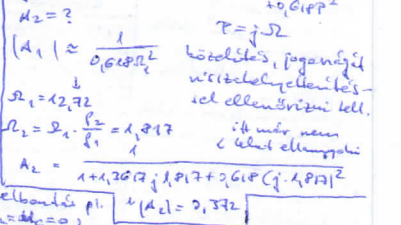 +0,618P²
A₂ = ?
P = jΩ
|A₁| ≈ 1 / 0,618Ω₁²
közelítés, jogosságát
visszahelyettesítés-
sel ellenőrizni kell.
↓
Ω₁ = 12,72
Ω₂ = Ω₁ · f₂/f₁ = 1,817
itt már nem
lehet elhanyagolni
A₂ = 1 / 1+1,3617·j1,817+0,618(j·1,817)²
|A₂| = 0,372
elbontás pl.